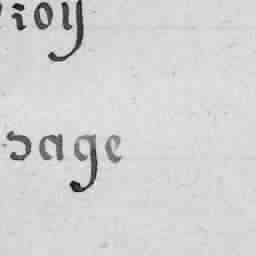 roy
sage